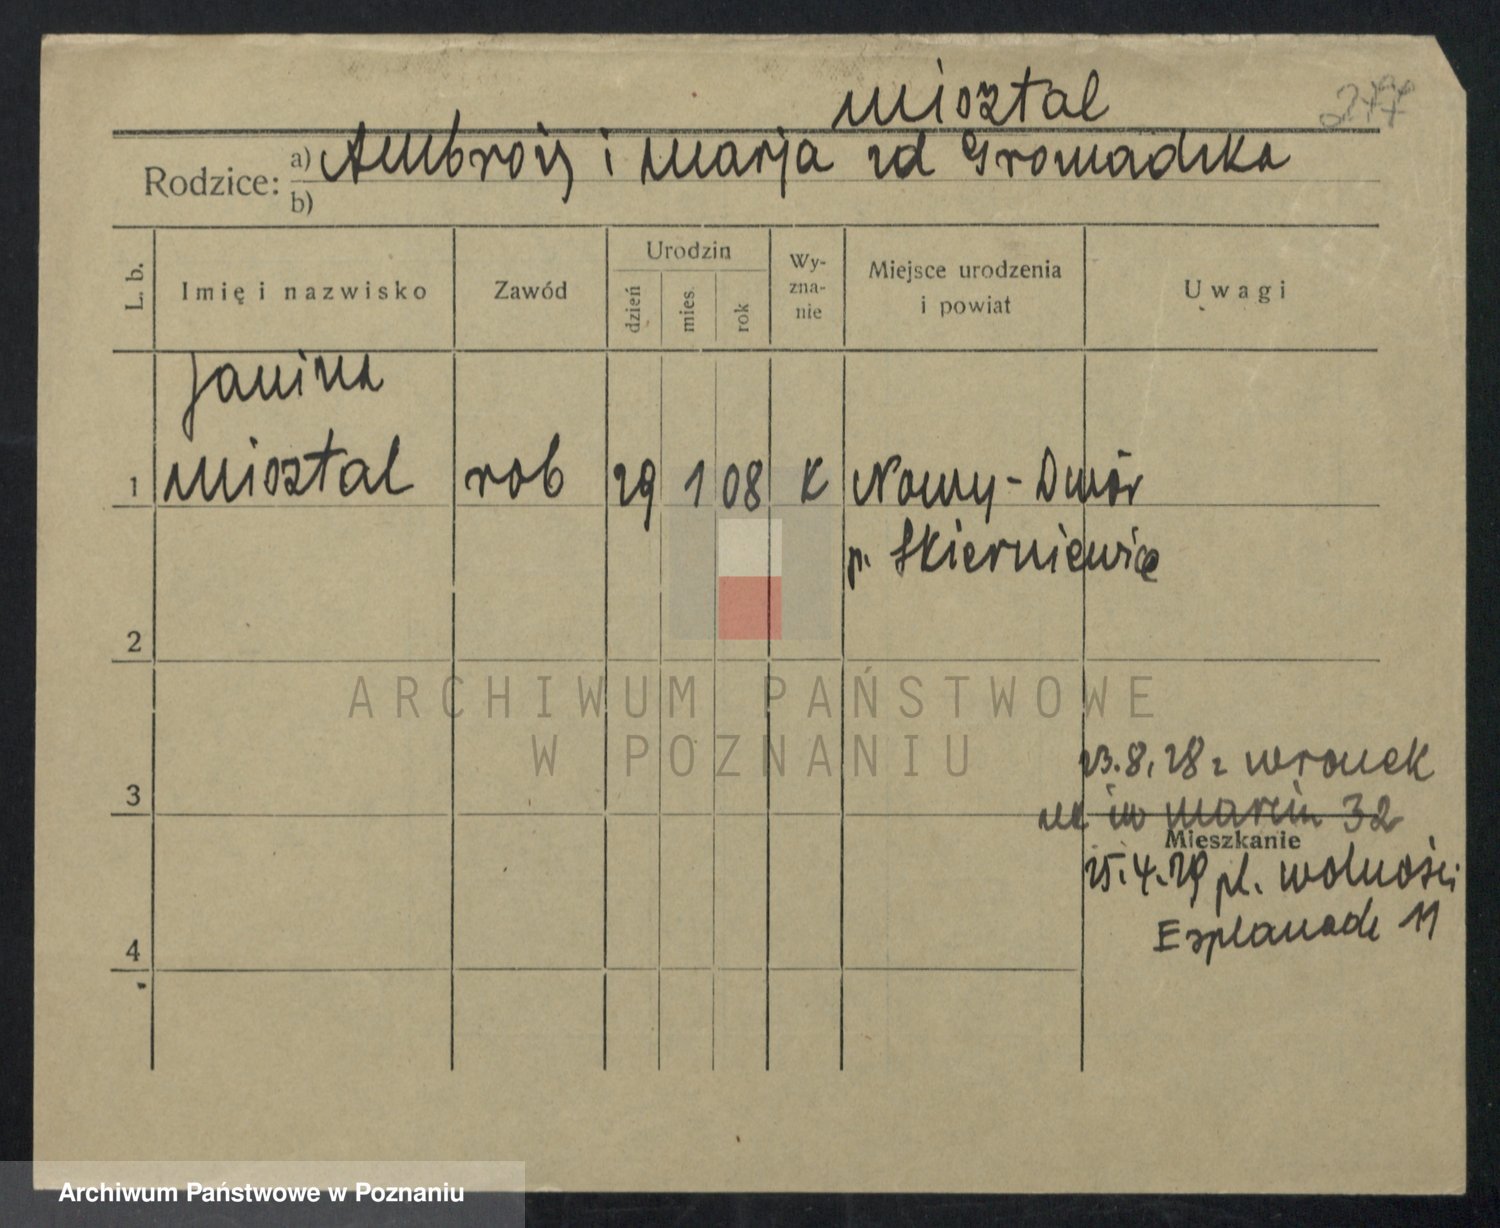 Misztal
Rodzice: a) Ambroży i Marja zd Gromadzka
b)
L. b. Imię i nazwisko Zawód Urodzin dzień mies. rok Wy-zna-nie Miejsce urodzenia i powiat Uwagi
Janina
1 Misztal rob 29 1 08 K Nowy-Dwór
p. Skierniewice
2
ARCHIWUM PAŃSTWOWE
W POZNANIU
23.8.28 z Wronek
3
na św Marcin 32
Mieszkanie
25.4.29 pl. Wolności
4 Esplanade 11
Archiwum Państwowe w Poznaniu